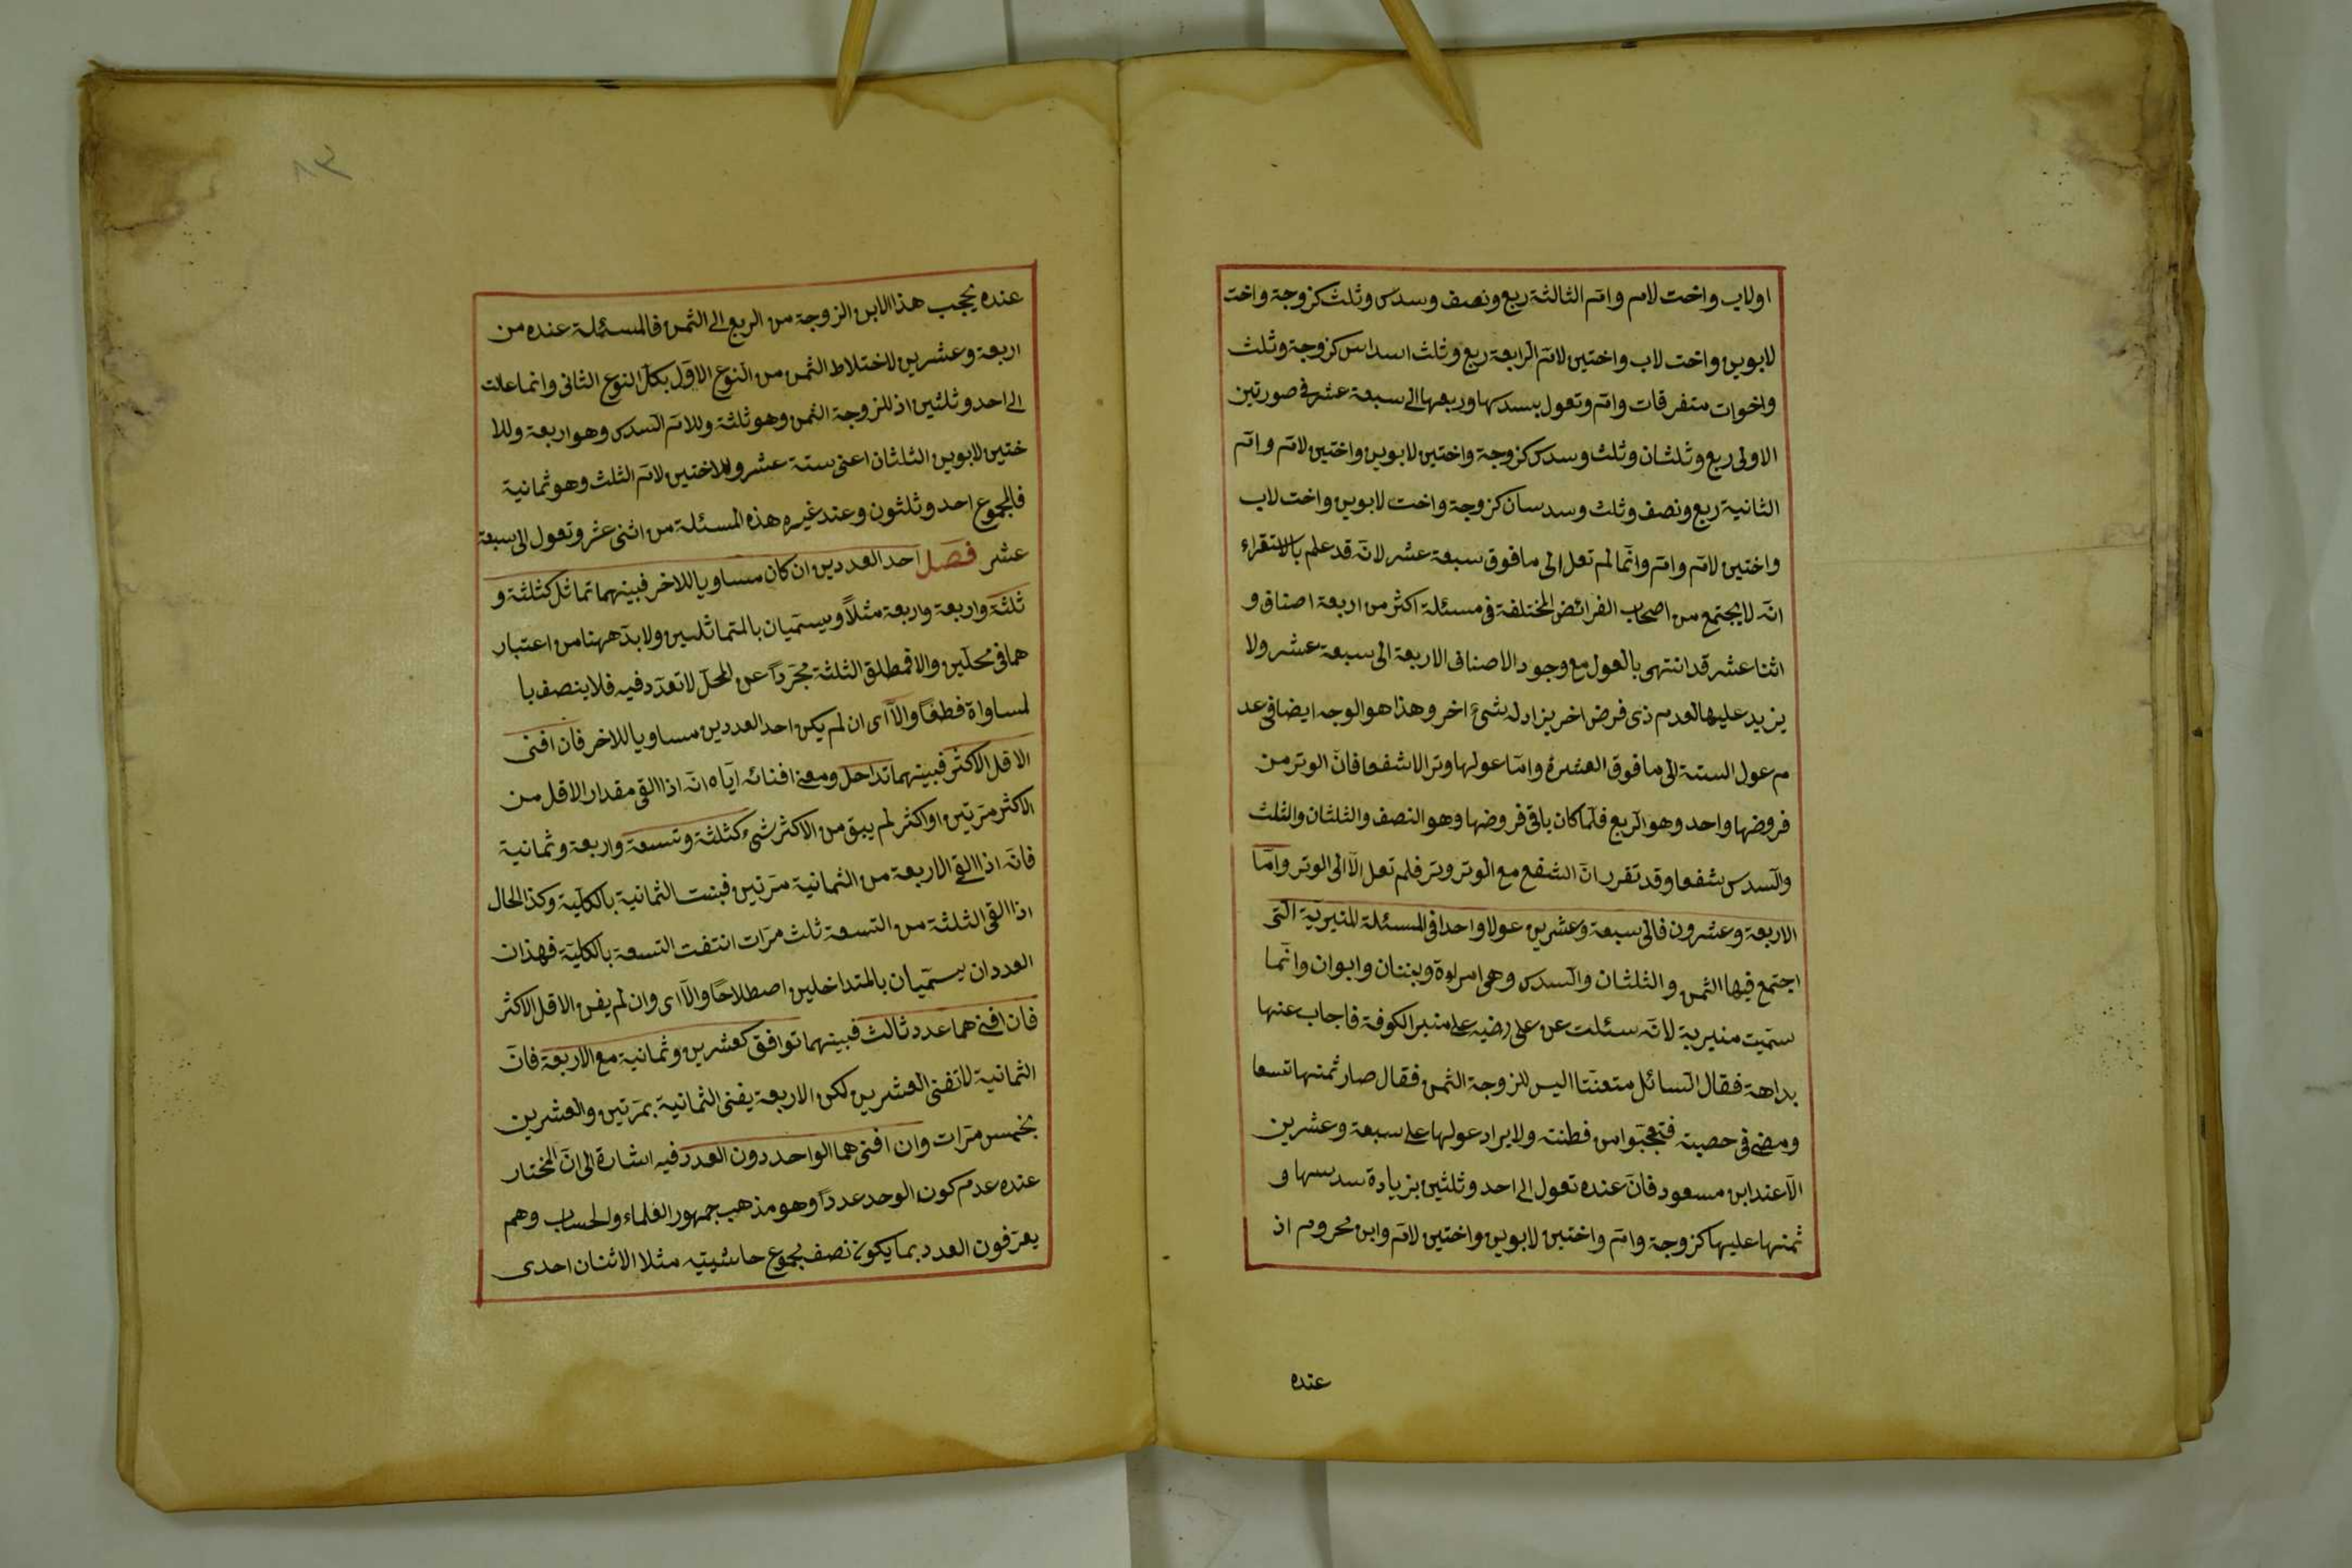 اولاب واخت لام وام الثالثة ربع ونصف وسدس وثلث كزوجة واخت
لابوين واخت لاب واختين لام الرابعة ربع وثلث اسداس كزوجة وثلث
واخوات متفرقات وام وتعول بسدسها وربعها الى سبعة عشر في صورتين
الاولى ربع وثلثان وثلث وسدس كزوجة واختين لابوين واختين لام وام
الثانية ربع ونصف وثلث وسدسان كزوجة واخت لابوين واخت لاب
واختين لام وام وانما لم تعل الى ما فوق سبعة عشر لانه قد علم بالاستقراء
انه لا يجتمع من اصحاب الفرائض المختلفة في مسئلة اكثر من اربعة اصناف و
اثنا عشر قد انتهى بالعول مع وجود الاصناف الاربعة الى سبعة عشر ولا
يزيد عليها لعدم ذى فرض اخر يزاد له بشئ اخر وهذا هو الوجه ايضا في عد
م عول الستة الى ما فوق العشرة واما عولها وترا لا شفعا فان الوتر من
فروضها واحد وهو الربع فلما كان باقى فروضها وهو النصف والثلثان والثلث
والسدس شفعا وقد تقرر ان الشفع مع الوتر وتر فلم تعل الا الى الوتر واما
الاربعة وعشرون فالى سبعة وعشرين عولا واحدا في المسئلة المنيرية التى
اجتمع فيها الثمن والثلثان والسدس وهى امراءة وبنتان وابوان وانما
سميت منبرية لانه سئلت عن على رضيه على منبر الكوفة فاجاب عنها
بداهة فقال السائل متعنتا اليس للزوجة الثمن فقال صار ثمنها تسعا
ومضى في خصبته فتعجبوا من فطنته ولا يزاد عولها على سبعة وعشرين
الا عند ابن مسعود فان عنده تعول الى احد وثلثين بزيادة سدسها و
ثمنها عليها كزوجة وام واختين لابوين واختين لام وابن محروم اذ
عنده
٨٣
عنده يحجب هذا الابن الزوجة من الربع الى الثمن فالمسئلة عنده من
اربعة وعشرين لاختلاط الثمن من النوع الاول بكل النوع الثانى وانما عالت
الى احد وثلثين اذ للزوجة الثمن وهو ثلثة وللام السدس وهو اربعة وللا
ختين لابوين الثلثان اعنى ستة عشر وللاختين لام الثلث وهو ثمانية
فالمجموع احد وثلثون وعند غيره هذه المسئلة من اثنى عشر وتعول الى سبعة
عشر فصل احد العددين ان كان مساويا للاخر فبينهما تماثل كثلثة و
ثلثة واربعة واربعة مثلا ويسميان بالمتماثلين ولا بد ههنا من اعتبار
هما في محلين والا فمطلق الثلثة مجردا عن المحل لا تعدد فيه فلا يتصف با
لمساواة قطعا والا اى ان لم يكن احد العددين مساويا للاخر فان افنى
الاقل الاكثر فبينهما تداخل ومعنى افنائه اياه انه اذا القى مقدار الاقل من
الاكثر مرتين او اكثر لم يبق من الاكثر شئ كثلثة وتسعة واربعة وثمانية
فانه اذا القى الاربعة من الثمانية مرتين فنيت الثمانية بالكلية وكذا الحال
اذا القى الثلثة من التسعة ثلث مرات انتفت التسعة بالكلية فهذان
العددان يسميان بالمتداخلين اصطلاحا والا اى وان لم يفن الاقل الاكثر
فان افنى هما عدد ثالث فبينهما توافق كعشرين وثمانية مع الاربعة فان
الثمانية لا تفنى العشرين لكن الاربعة يفنى الثمانية بمرتين والعشرين
بخمس مرات وان افنى هما الواحد دون العدد فيه اشارة الى ان المختار
عنده عدم كون الوحد عددا وهو مذهب جمهور العلماء والحساب وهم
يعرفون العدد بما يكون نصف مجموع حاشيتيه مثلا الاثنان احدى